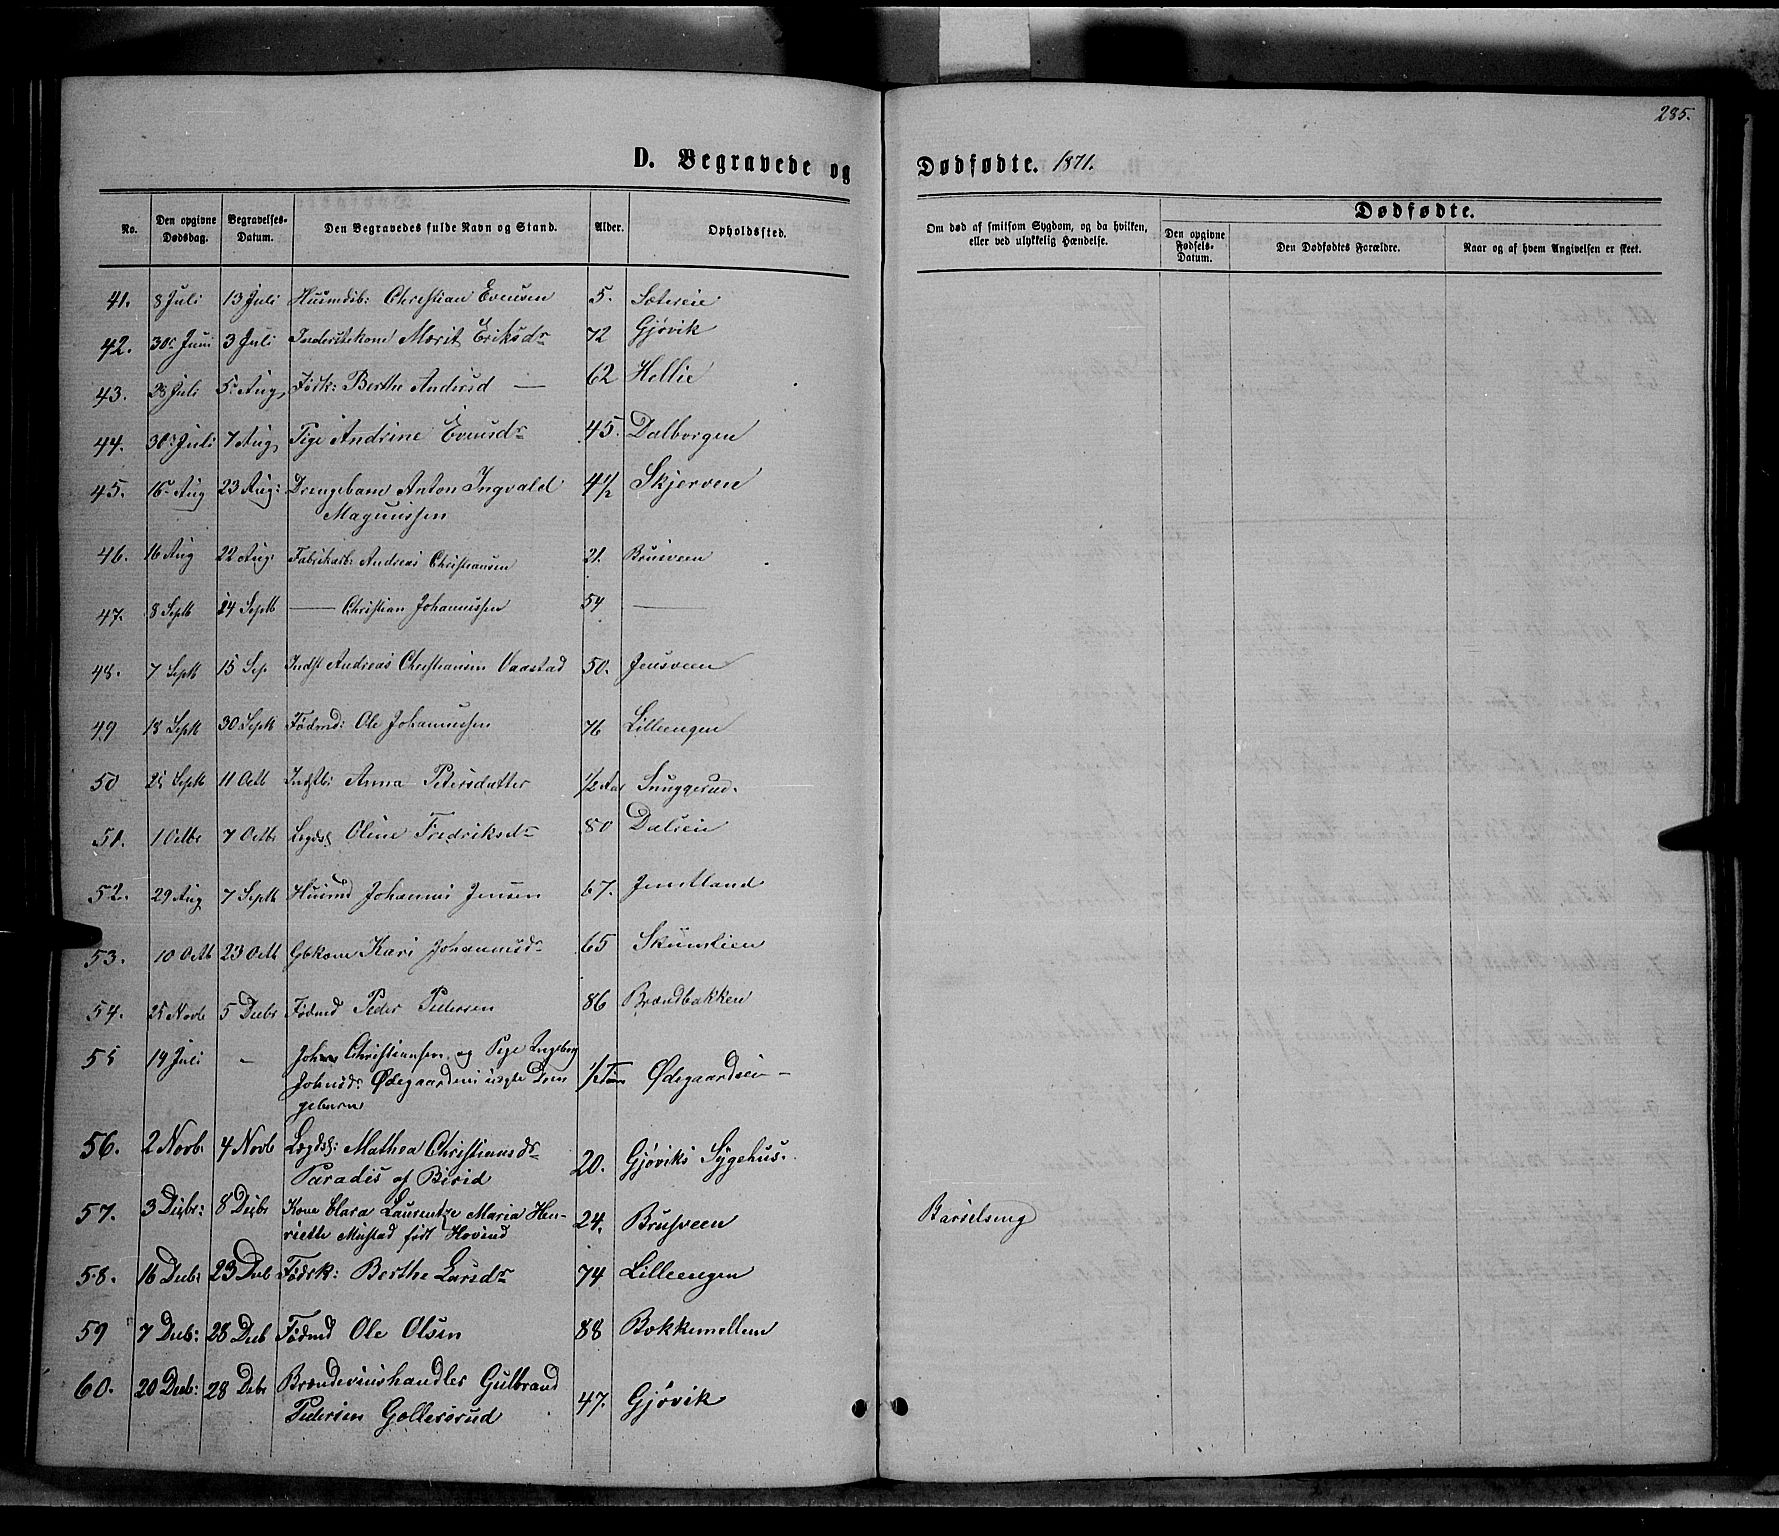 285.
D. Begravede og Dødfødte. 1871.
No. Den opgivne Dødsdag. Begravelses-Datum. Den Begravedes fulde Navn og Stand. Alder. Opholdssted. Om død af smitsom Sygdom, og da hvilken, eller ved ulykkelig Hændelse. Dødfødte. Den opgivne Fødsels-Datum. Den Dødfødtes Forældre. Naar og af hvem Angivelsen er skeet.
41. 8 Juli 13 Juli Husmdsb: Christian Evensen 5. Sætereie
42. 30 Juni 3 Juli Inderstekone Marit Eriksdr 72 Gjøvik
43. 28 Juli 5 Aug Fødk: Berthe Andersd — 62 Hollie
44. 30 Juli 7 Aug Pige Andrine Evensdr 45. Dalborgen
45. 16 Aug 23 Aug: Drengebarn Anton Ingvald 4½ Skjerven
Magnussen
46. 16 Aug 22 Aug: Fabrikarb: Andreas Christiansen 21. Brusveen
47. 8 Septb 24 Septb — Christian Johannessen 54 —
48. 7 Septb 15 Sep. Indst Andreas Christiansen Vaastad 50. Jensveen
49 18 Septb 30 Septb Fødmd: Ole Johannessen 76 Lilleengen
50 25 Septb 11 Octb Indstb: Anna Petersdatter ½ Aar Snuggerud.
51. 1 Octbr 7 Octbr Lægdsl Oline Fredriksdr 80 Dalseie
52. 29 Aug 7 Septb Husmd Johannes Jensen 67. Jemtland
53. 10 Octb 23 Octb Gbkone Kari Johannesdr 65 Skumlien
54. 25 Novb 5 Decbr Fødmd Peder Pedersen 86 Brændbakken
55 14 Juli - Johs Christiansen og Pige Ingeborg
Johnsdr Ødegaardseie uægte Dren ½ Time Ødegaardseie —
gebarn
56. 2 Novb: 4 Novb Lægdsl: Mathea Christiansdr 20. Gjøviks Sygehus.
Paradis af Birid
57. 3 Decbr: 8 Decbr Kone Clara Laurentze Maria Hen- 24. Brusveen Barselseng
riette Mustad født Hovind
58. 16 Decbr 23 Decb Fødrk: Berthe Larsdr 74 Lilleengen
59 7 Decb: 28 Decb Fødmd Ole Olsen 88 Bokkemellem
60. 20 Decb: 28 Debr Brændeviinshandler Gulbrand 47. Gjøvik
Pedersen Gollersrud